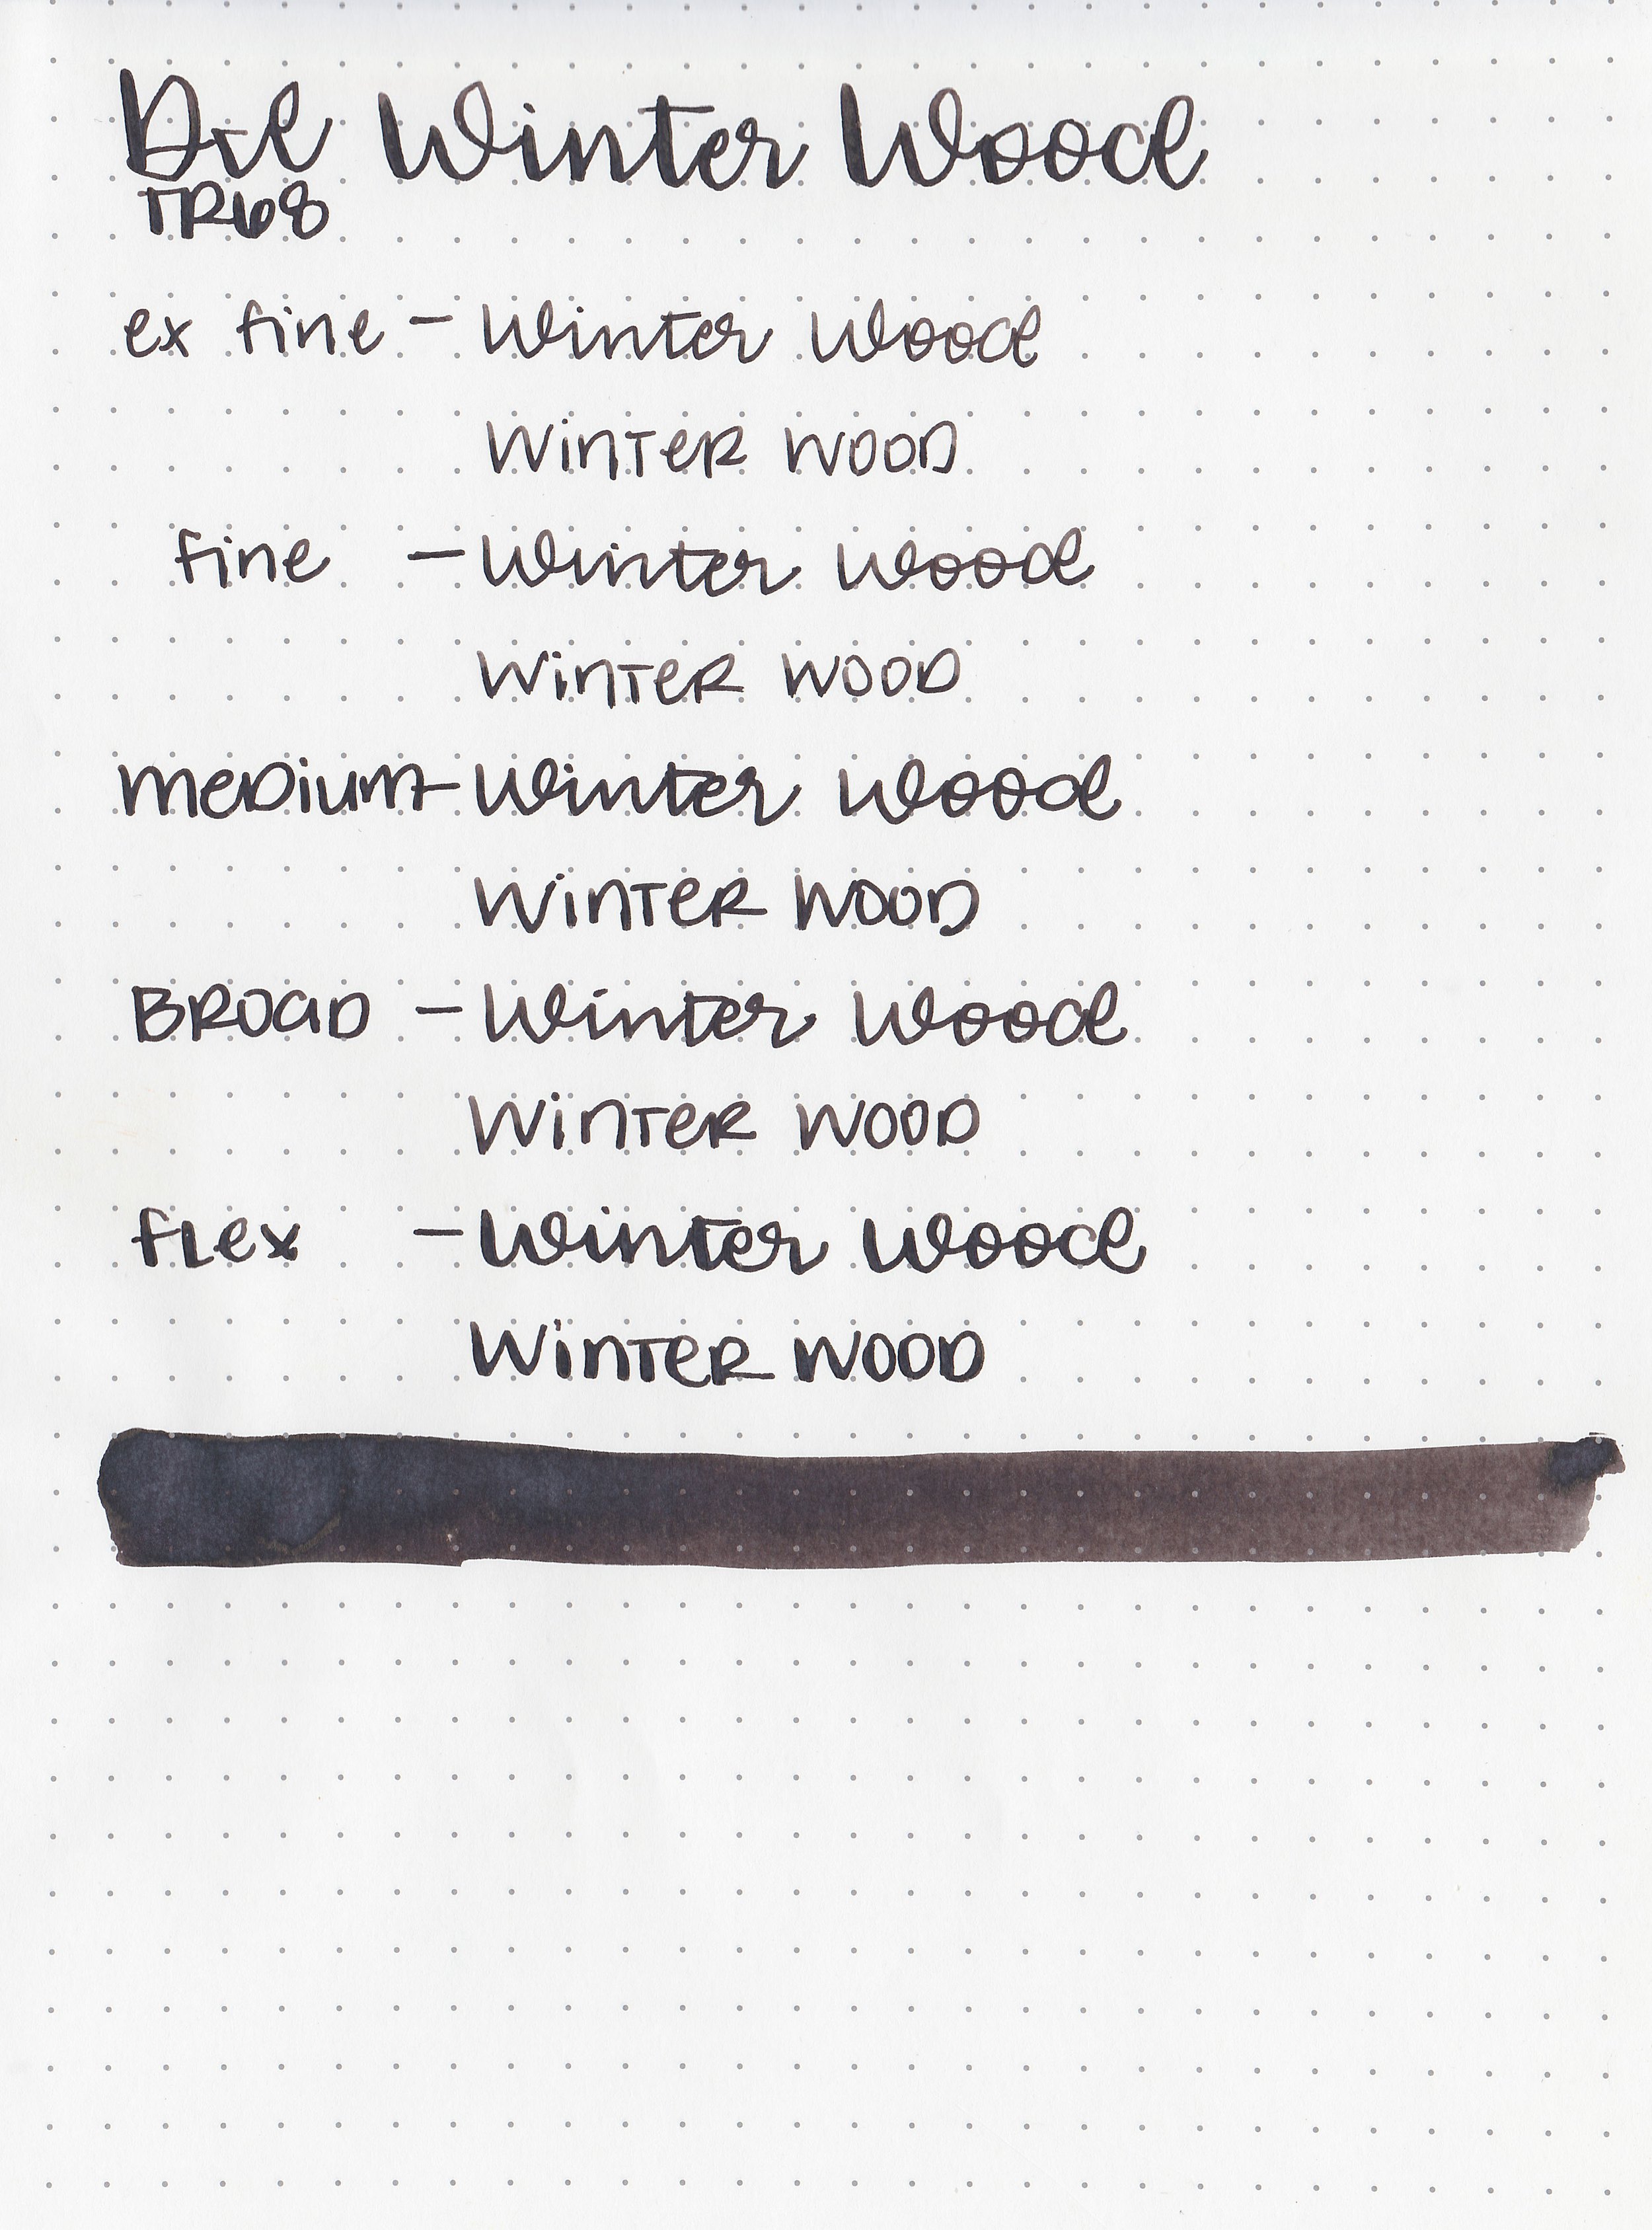 Dxl Winter Wood
TR68
ex fine - Winter Wood
WinTeR WOOD
fine - Winter Wood
WinTeR WOOD
meDium - Winter Wood
WinTeR WOOD
BROaD - Winter Wood
WinTeR WOOD
fLex - Winter Wood
WinTeR WOOD